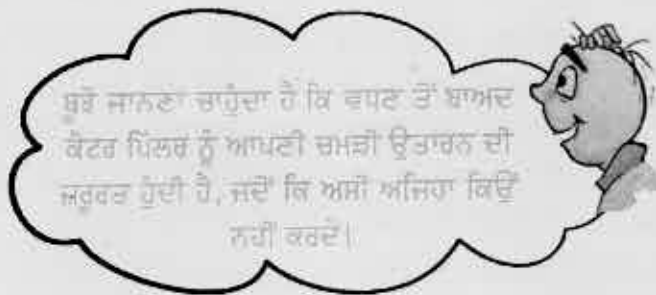 ਬੂਝੋ ਜਾਨਣਾ ਚਾਹੁੰਦਾ ਹੈ ਕਿ ਵਧਣ ਤੋਂ ਬਾਅਦ
ਕੈਟਰ ਪਿੱਲਰ ਨੂੰ ਆਪਣੀ ਚਮੜੀ ਉਤਾਰਨ ਦੀ
ਜ਼ਰੂਰਤ ਹੁੰਦੀ ਹੈ, ਜਦੋਂ ਕਿ ਅਸੀਂ ਅਜਿਹਾ ਕਿਉਂ
ਨਹੀਂ ਕਰਦੇ।